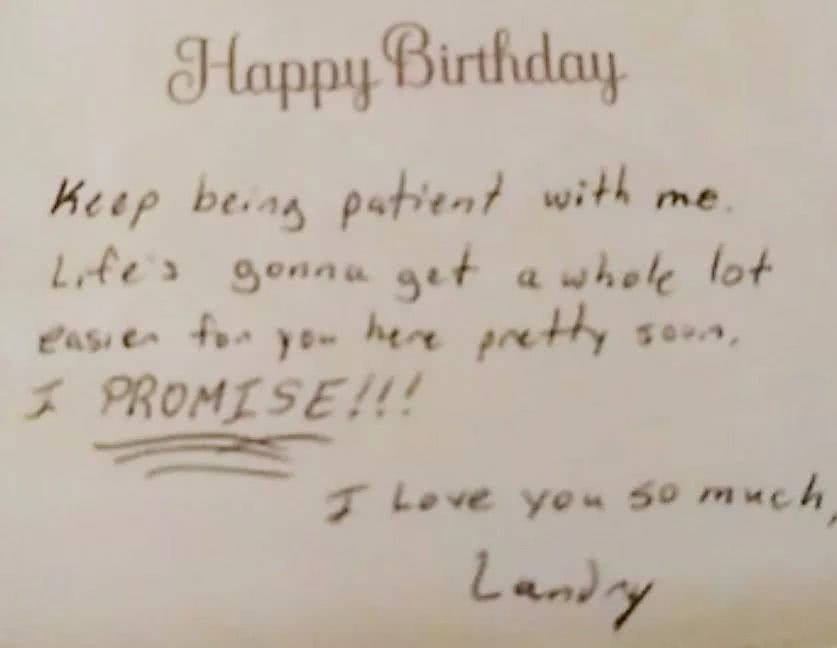 Happy Birthday
Keep being patient with me.
Life's gonna get a whole lot
easier for you here pretty soon.
I PROMISE!!!
I Love you so much,
Landry